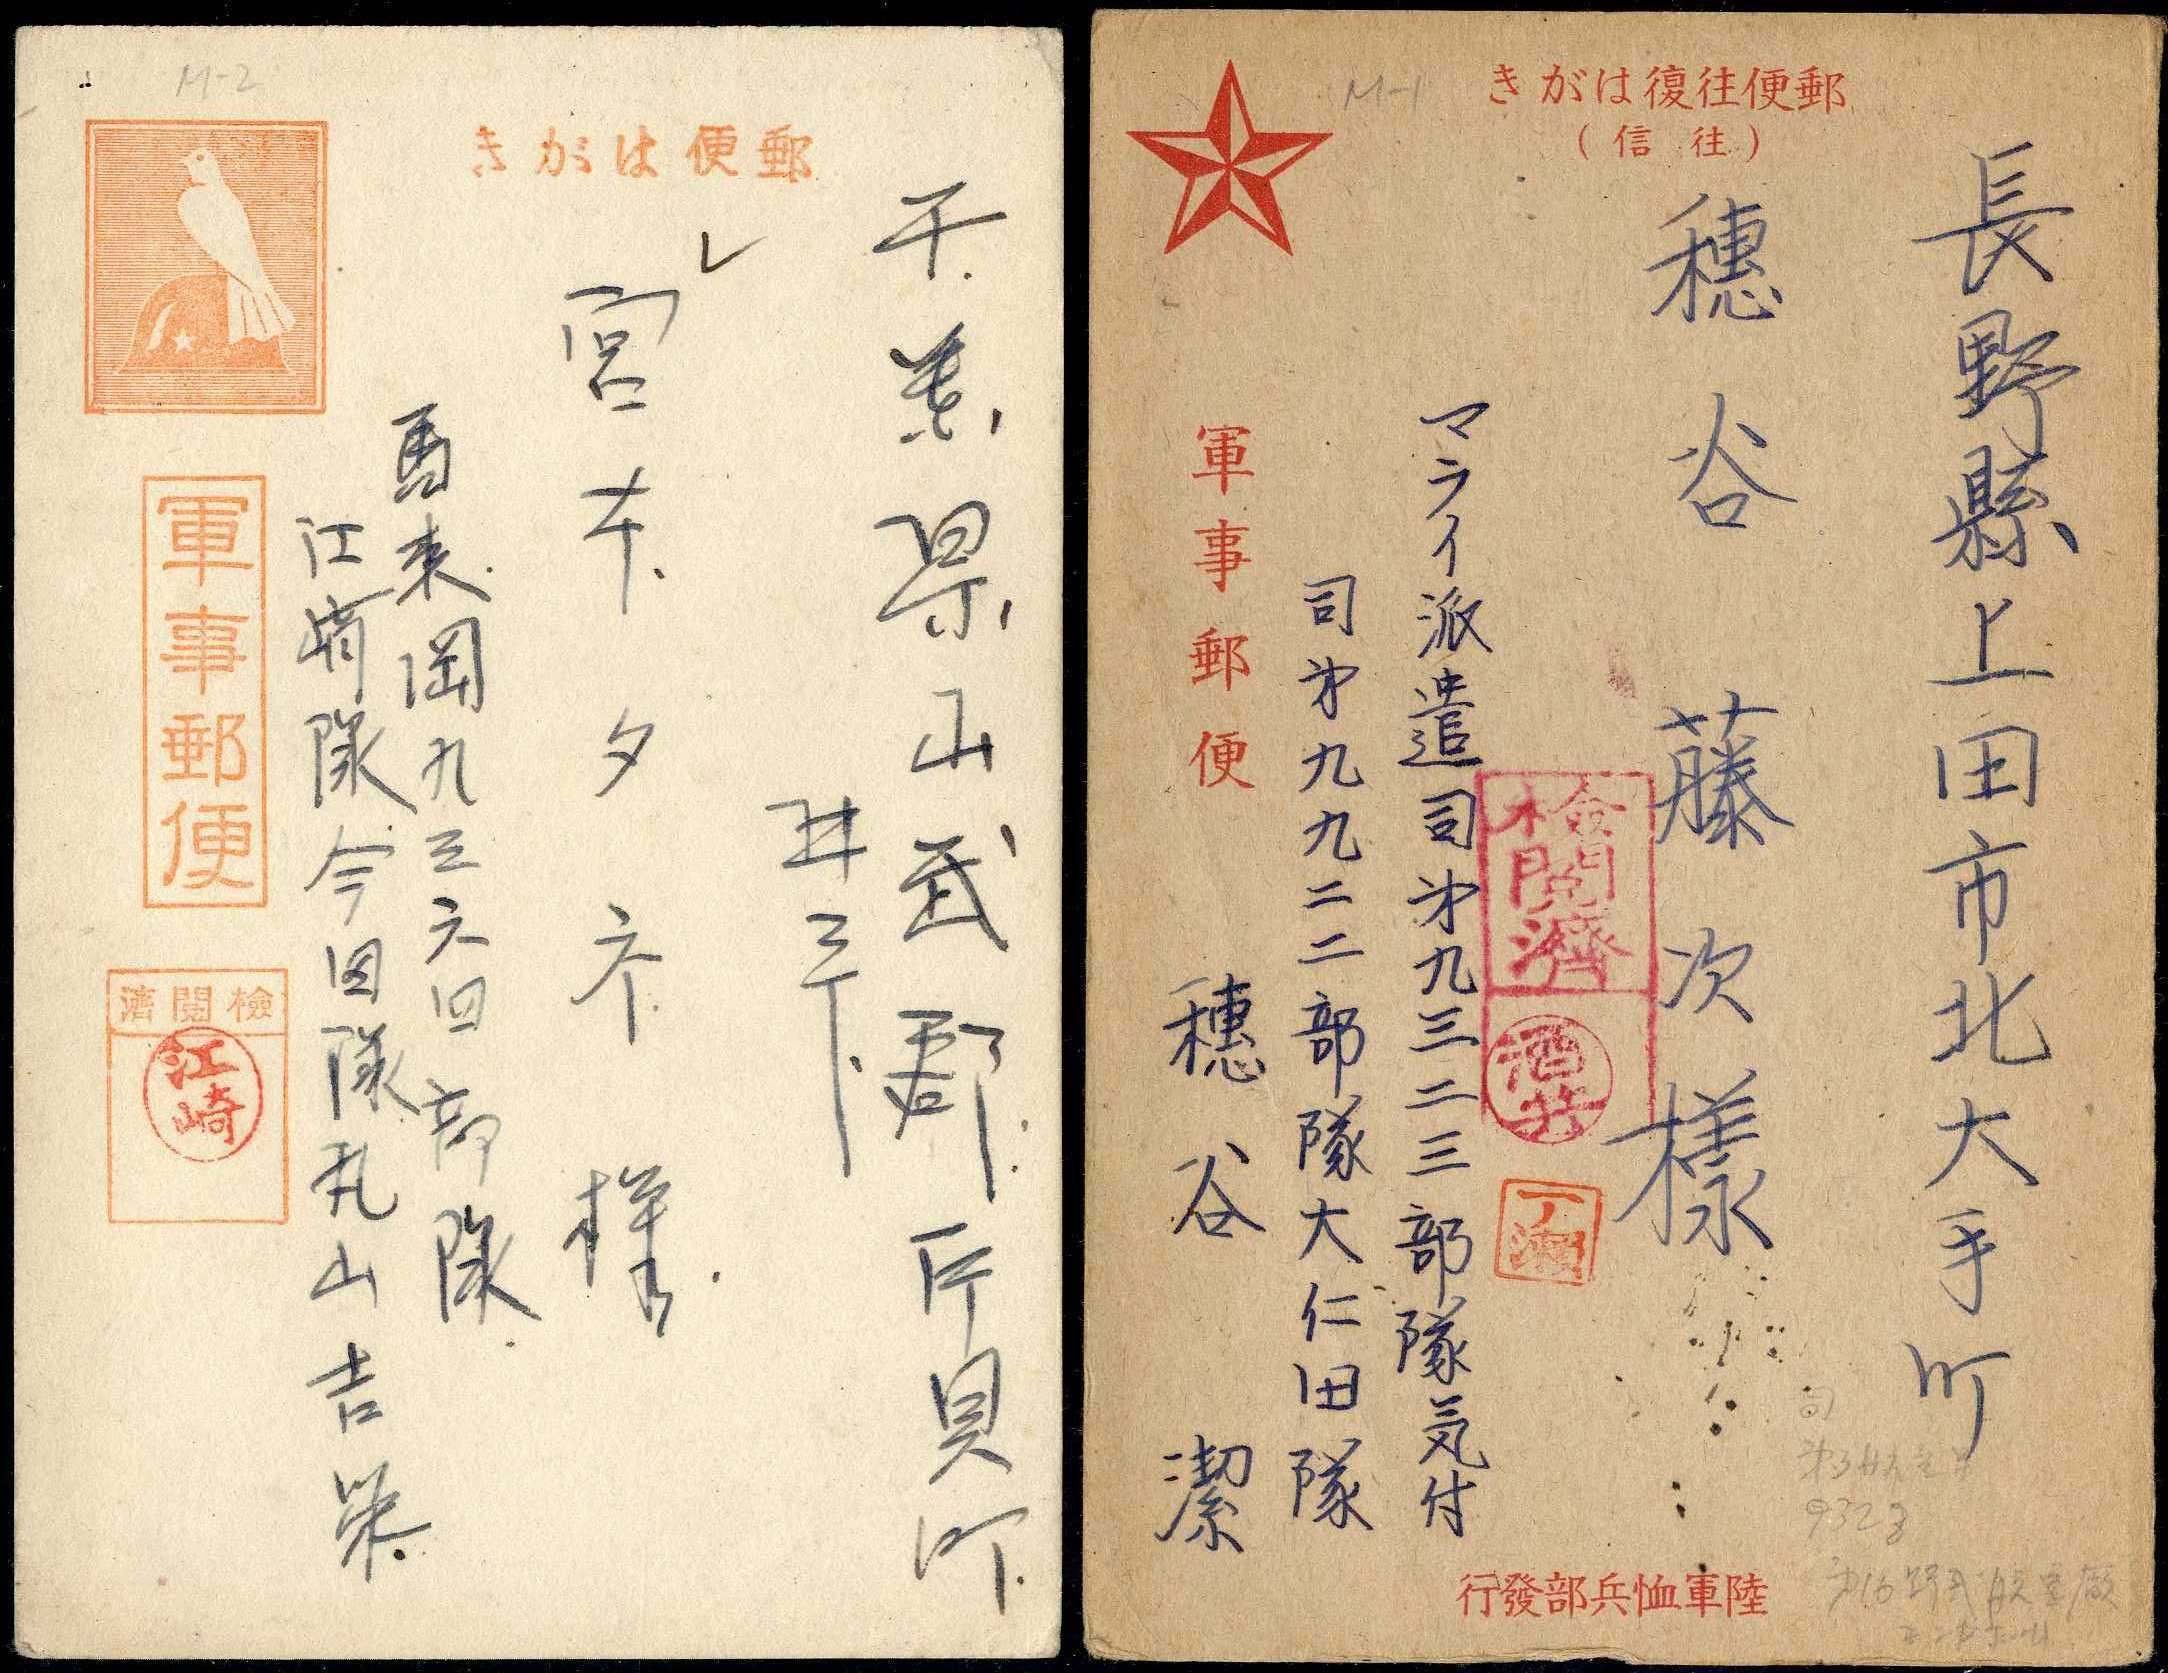 M-2
郵便はがき
千葉県山武郡片貝町
レ
宮本夕 様
馬来岡九三六四部隊
江崎隊今田隊丸山吉栄
軍事郵便
検閲濟
江崎
M-1
郵便往復はがき
(往信)
長野縣上田市北大手町
穗谷藤次様
マライ派遣司第九三二三部隊気付
司第九九二二部隊大仁田隊
穗谷潔
軍事郵便
檢閲濟
酒井
陸軍恤兵部發行